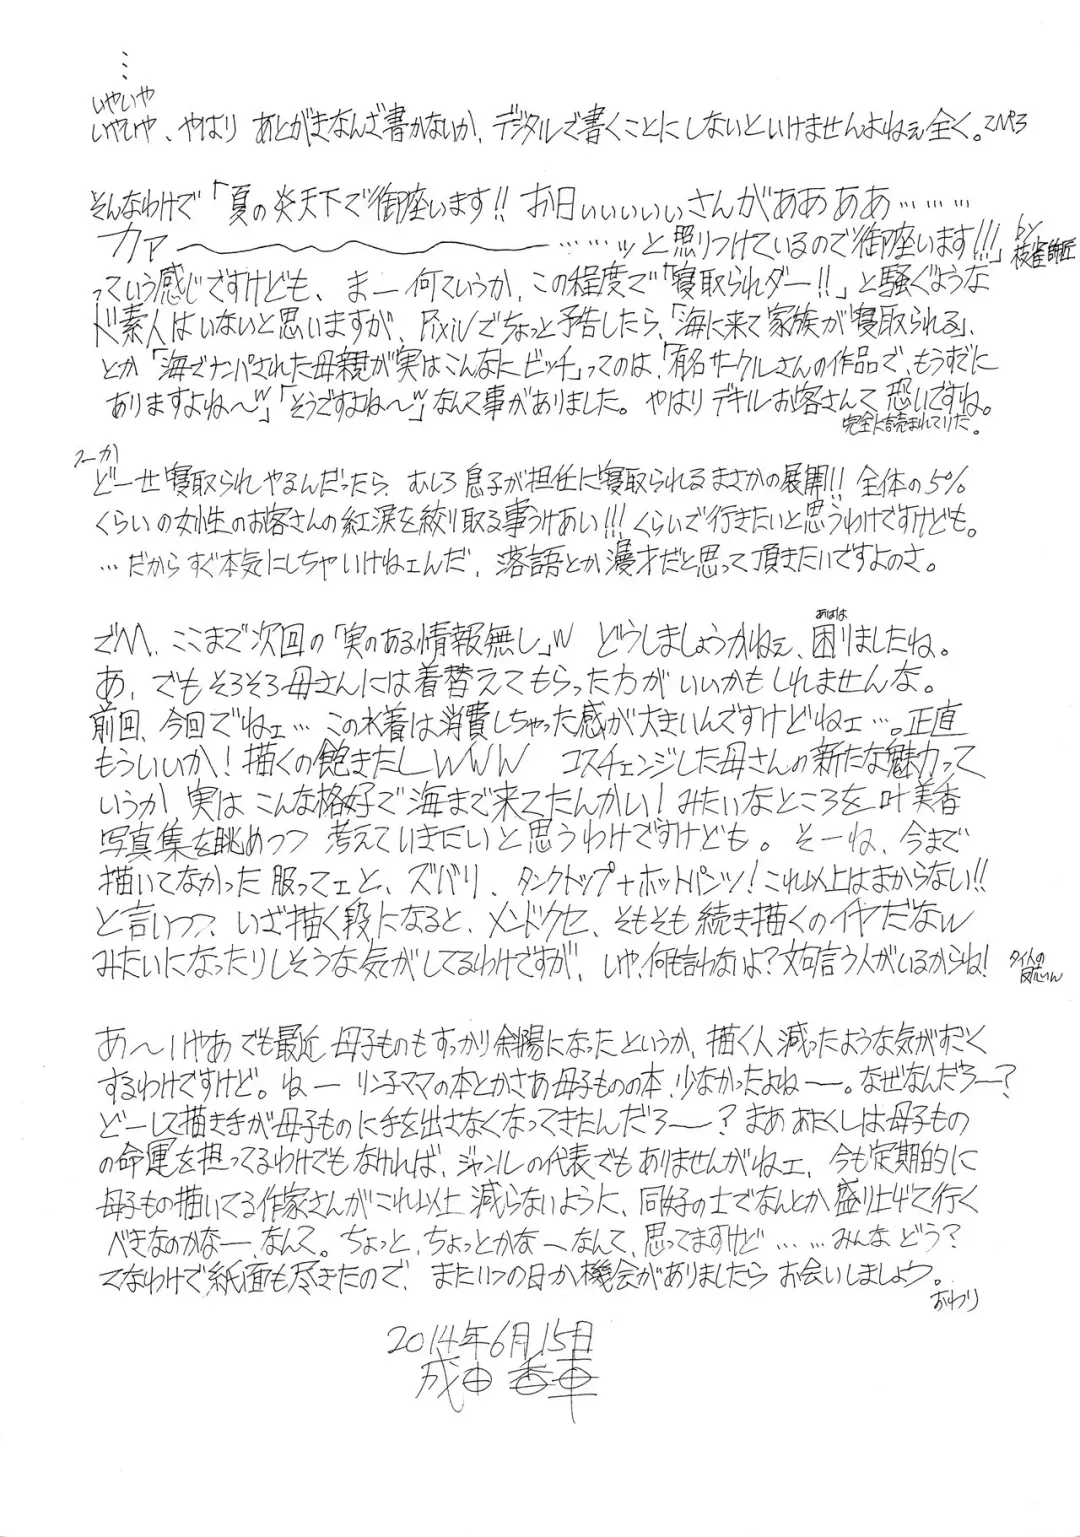 …
いやいや
いやいや、やはり あとがきなんざ書かないか、デジタルで書くことにしないといけませんよねぇ全く。
そんなわけで「夏の炎天下で御座います!! お日ぃぃぃぃぃさんがああああ………
カァー ……ッと照りつけているので御座います!!!」by枝雀師匠
っていう感じですけども、まー何ていうか、この程度で「寝取られダー!!」と騒ぐような
ド素人はいないと思いますが、Pixivでちょっと予告したら、「海に来て家族が寝取られる」、
とか「海でナンパされた母親が実はこんなにビッチ」ってのは、「有名サークルさんの作品で、もうすでに
ありますよね〜」「そうですよね〜」なんて事がありました。やはりデキルお客さんて恐いですね。
完全に読まれていた。
つーか
どーせ寝取られやるんだったら、むしろ息子が担任に寝取られるまさかの展開!! 全体の5%
くらいの女性のお客さんの紅涙を絞り取る事うけあい!!! くらいで行きたいと思うわけですけども。
…だからすぐ本気にしちゃいけねェんだ、落語とか漫才だと思って頂きたいですよのさ。
でM、ここまで次回の「実のある情報無し」w どうしましょうかねぇ、困りましたね。
あばは
あ、でもそろそろ母さんには着替えてもらった方がいいかもしれませんな。
前回、今回でねェ…この水着は消費しちゃった感が大きいんですけどねェ…。正直
もういいか!描くの飽きたしwww コスチェンジした母さんの新たな魅力って
いうか 実は こんな格好で海まで来てたんかい!みたいなところを 叶美香
写真集を眺めつつ 考えていきたいと思うわけですけども。そーね、今まで
描いてなかった服ってェと、ズバリ、タンクトップ+ホットパンツ!これ以上はまからない!!
と言いつつ、いざ描く段になると、メンドクセ、そもそも続き描くのイヤだなw
みたいになったりしそうな気がしてるわけですが、いや、何も言わないよ?文句言う人がいるからね!
あ〜いやあ でも最近 母子ものもすっかり斜陽になったというか、描く人減ったような気がすごく
するわけですけど。ねー リン子ママの本とかさあ母子ものの本、少なかったよねー。なぜなんだろー?
どーして描き手が母子ものに手を出さなくなってきたんだろー?まああたくしは母子もの
の命運を担ってるわけでもなければ、ジャンルの代表でもありませんがねェ、今も定期的に
母子もの描いてる作家さんがこれ以上減らないように、同好の士でなんとか盛り上げて行く
べきなのかなー、なんて。ちょっと、ちょっとかなーなんて、思ってますけど……みんなどう?
てなわけで紙面も尽きたので、またいつの日か機会がありましたらお会いしましょう。
おわり
2014年6月15日
成田香車